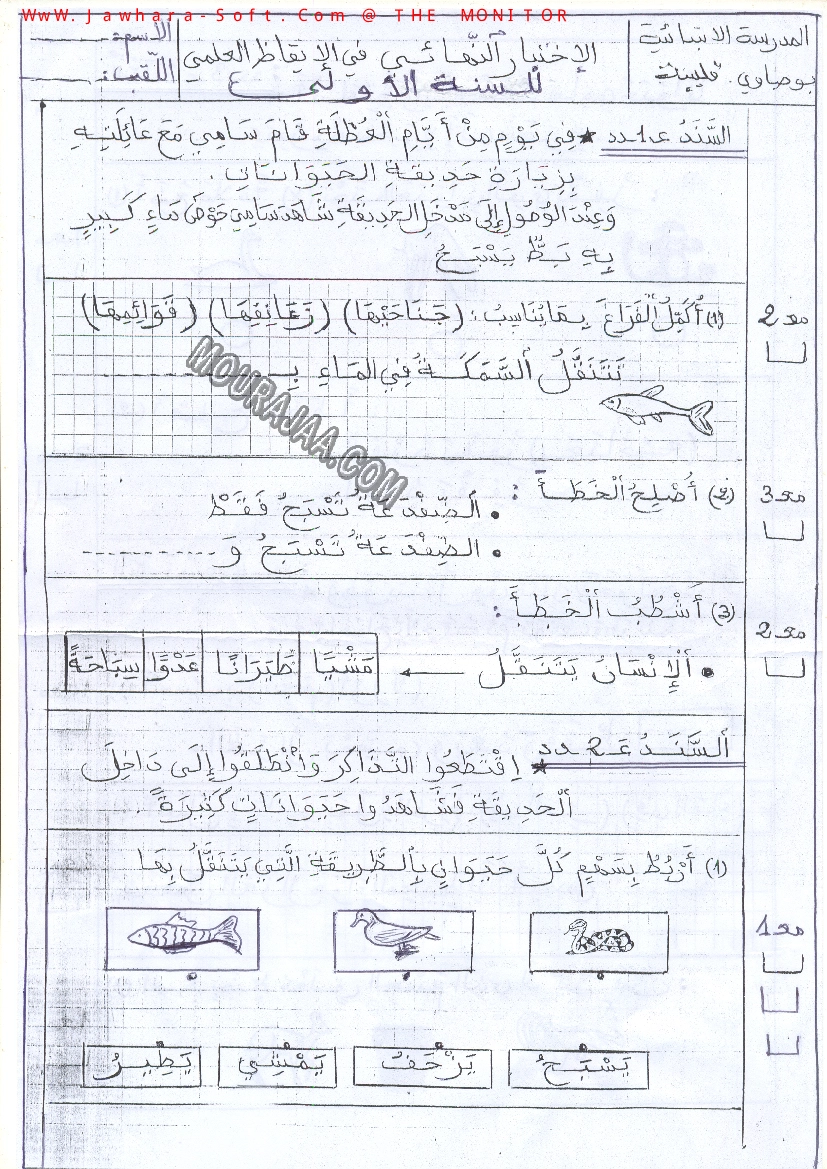 WwW.Jawhara-Soft.Com @ THE MONITOR
المدرسة الابتدائية
بوصاوي. قليبية
الإختبار النّهائي في الإيقاظ العلمي
للسنة الأولى
الاسم: ........
اللّقب: ........
السَّنَدُ عـ1ـدد ★ فِي يَوْمٍ مِنْ أَيَّامِ الْعُطْلَةِ قَامَ سَامِي مَعَ عَائِلَتِهِ
بِزِيَارَةِ حَدِيقَةِ الحَيَوَانَاتِ.
وَعِنْدَ الْوُصُولِ إِلَى مَدْخَلِ الحَدِيقَةِ شَاهَدَ سَامِي حَوْضَ مَاءٍ كَبِيرٍ
بِهِ بَطٌّ يَسْبَحُ
1) أُكَمِّلُ الْفَرَاغَ بِمَا يُنَاسِبُ: (جَنَاحَيْهَا) (زَعَانِفِهَا) (قَوَائِمِهَا)
مع 2
تَتَنَقَّلُ السَّمَكَةُ فِي المَاءِ بِـ ........
MOURAJAA.COM
2) أُصْلِحُ الْخَطَأَ:
مع 3
• الضِّفْدَعَةُ تَسْبَحُ فَقَطْ
• الضِّفْدَعَةُ تَسْبَحُ وَ ........
3) أَشْطُبُ الْخَطَأَ:
مع 2
• الْإِنْسَانُ يَتَنَقَّلُ ← مَشْيًا طَيَرَانًا عَدْوًا سِبَاحَةً
السَّنَدُ عَـ2ـدد ★ اِقْتَطَعُوا التَّذَاكِرَ وَانْطَلَقُوا إِلَى دَاخِلِ
الْحَدِيقَةِ فَشَاهَدُوا حَيَوَانَاتٍ كَثِيرَةً.
1) أَرْبُطُ بِسَهْمٍ كُلَّ حَيَوَانٍ بِالطَّرِيقَةِ الَّتِي يَتَنَقَّلُ بِهَا
مع 1
يَسْبَحُ يَزْحَفُ يَمْشِي يَطِيرُ